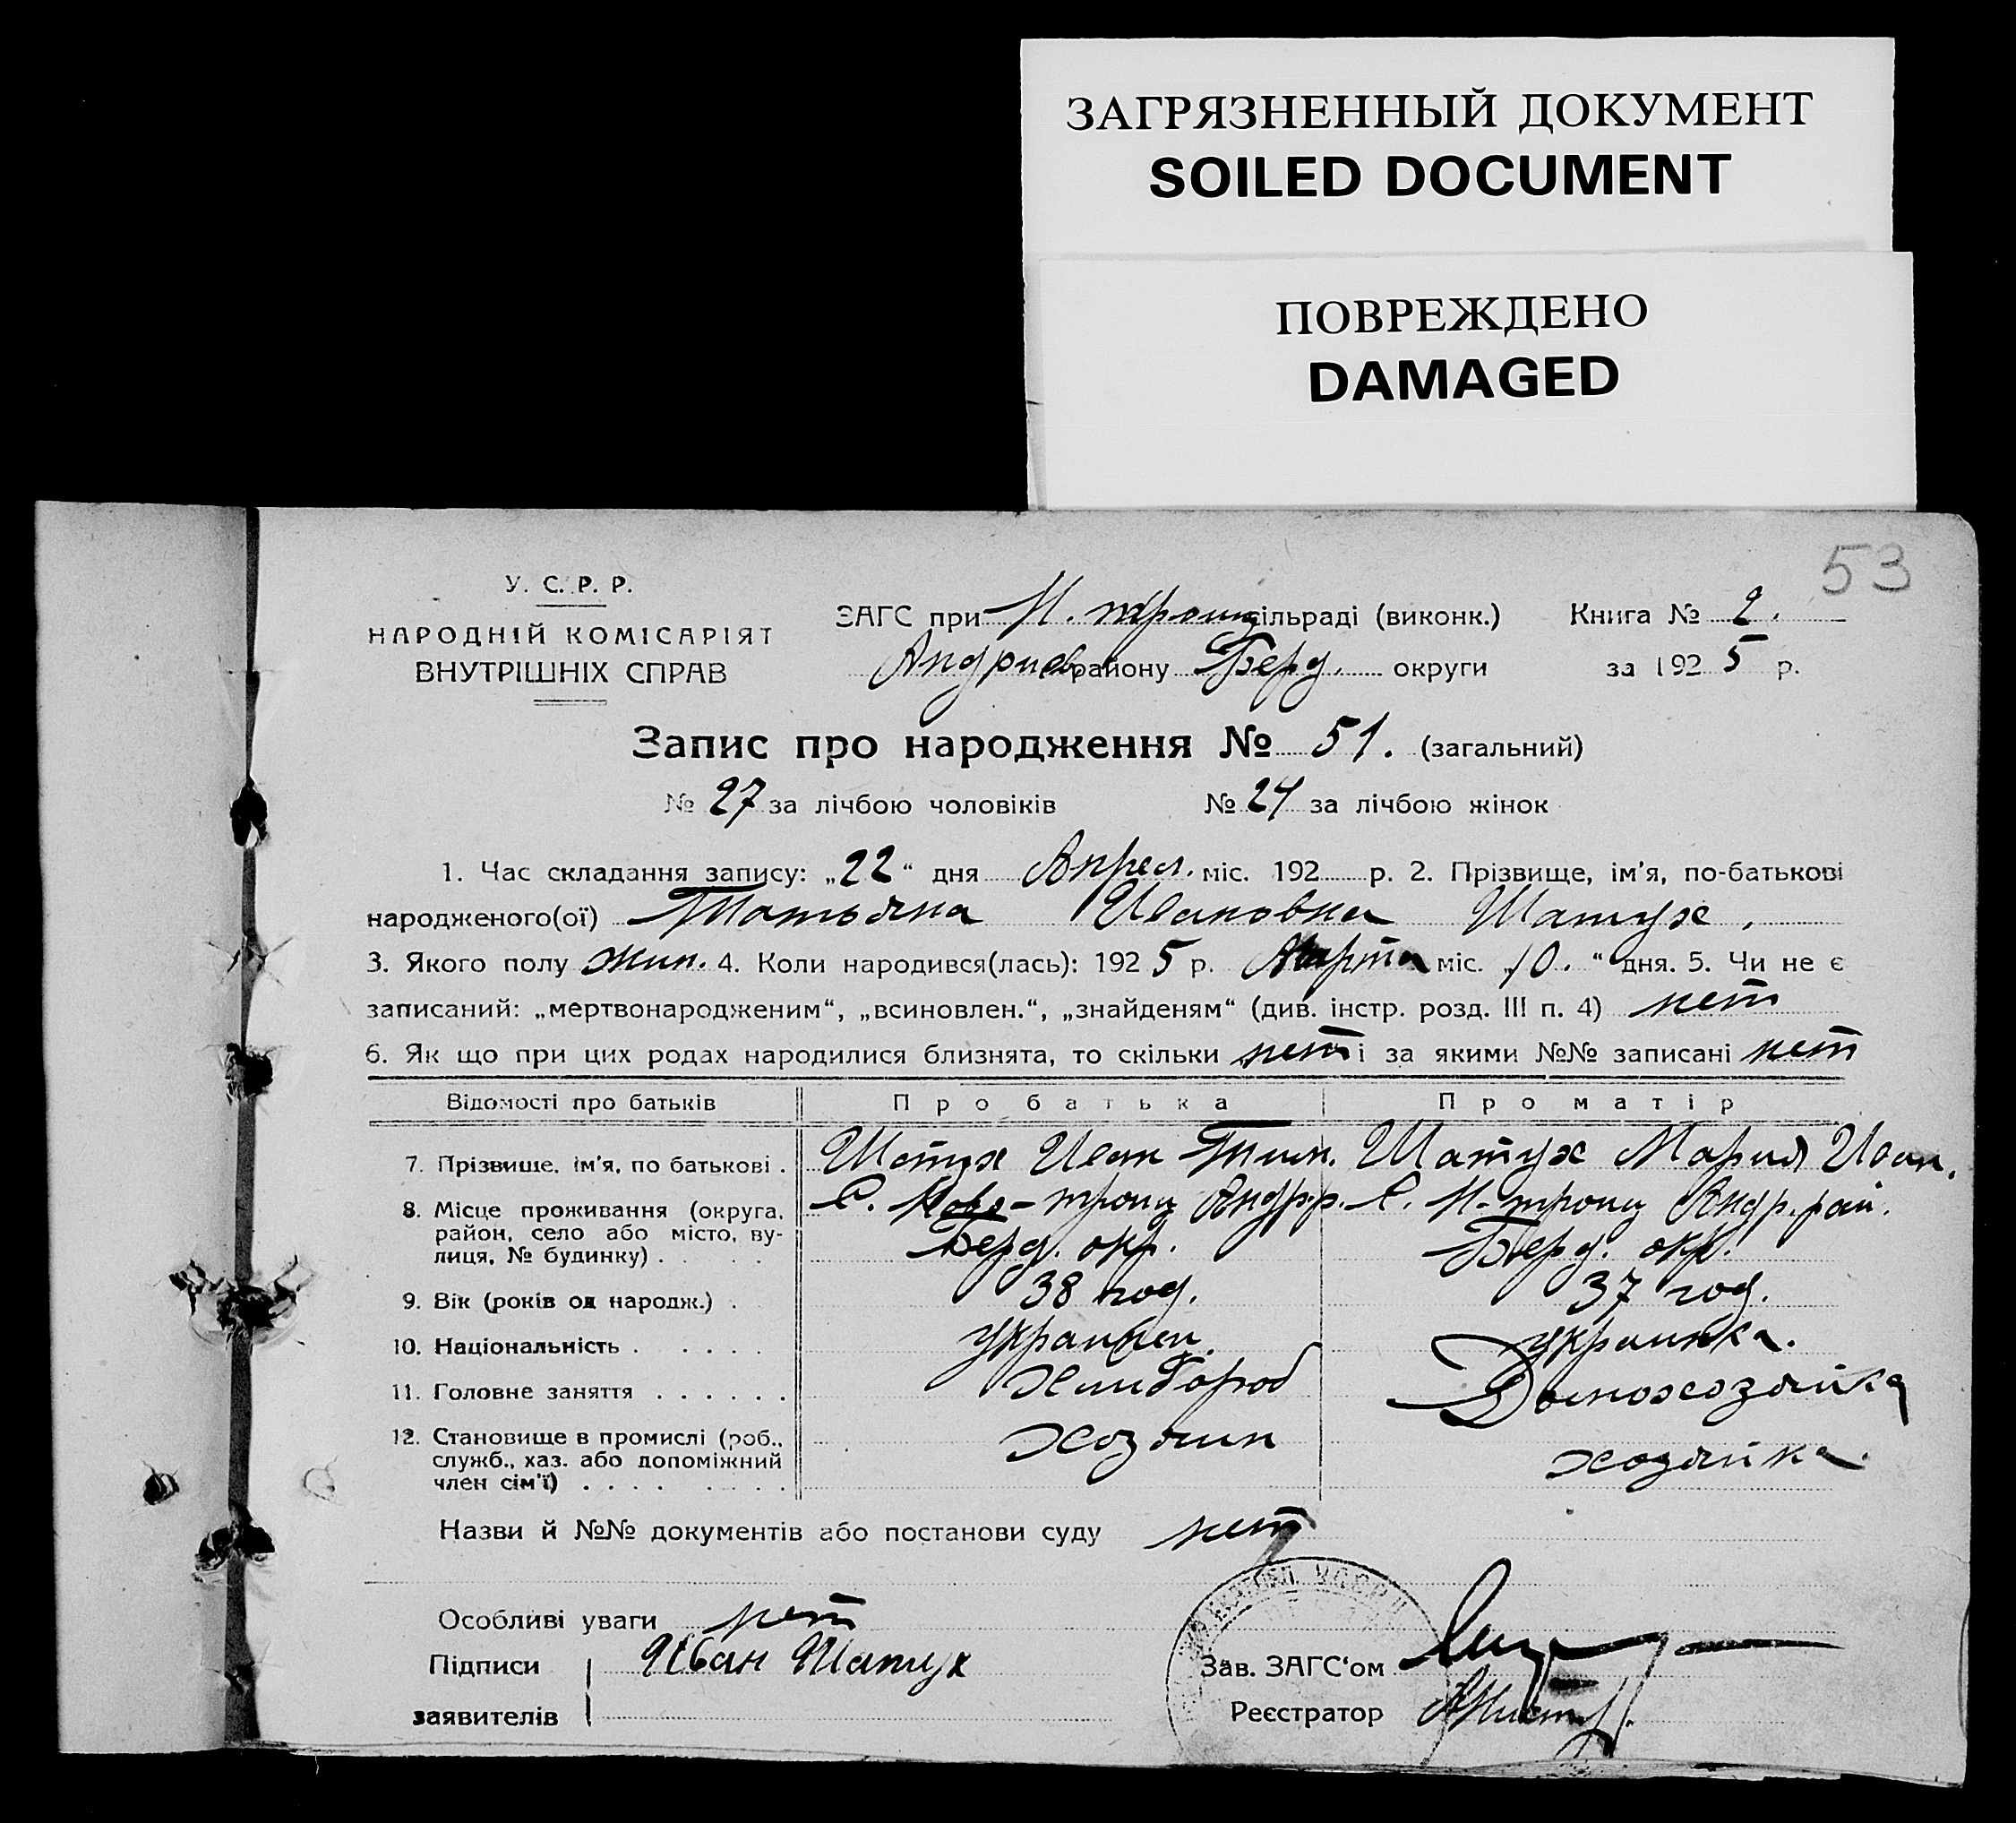 ЗАГРЯЗНЕННЫЙ ДОКУМЕНТ
SOILED DOCUMENT
ПОВРЕЖДЕНО
DAMAGED
53
У. С. Р. Р.
НАРОДНІЙ КОМІСАРІЯТ
ВНУТРІШНІХ СПРАВ
ЗАГС при Н. троиц сільраді (виконк.) Книга № 2.
Андриев. району Берд. округи за 1925 р.
Запис про народження № 51. (загальний)
№ 27 за лічбою чоловіків № 24 за лічбою жінок
1. Час складання запису: „22“ дня Апрел. міс. 192 р. 2. Прізвище, ім'я, по-батькові
народженого(ої) Татьяна Ивановна Шатух.
3. Якого полу жин. 4. Коли народився(лась): 1925 р. Марта міс. „10.“ дня. 5. Чи не є
записаний: „мертвонародженим“, „всиновлен.“, „знайденям“ (див. інстр. розд. III п. 4) нет
6. Як що при цих родах народилися близнята, то скільки нет і за якими №№ записані нет
Відомості про батьків Про батька Про матір
7. Прізвище, ім'я, по батькові . Шатух Иван Тим. Шатух Мария Иван.
8. Місце проживання (округа, район, село або місто, вулиця, № будинку) . С. Ново-троиц Андр.р. Берд. окр. С. Н-троиц Андр. рай. Берд. окр.
9. Вік (років од народж.) . 38 год. 37 год.
10. Національність . украинец. украинка.
11. Головне заняття . . . . . . Хлибороб Домохозяйка
12. Становище в промислі (роб., служб., хаз. або допоміжний член сім'ї) . . . . хозяин хозяйка
Назви й №№ документів або постанови суду нет
Особливі уваги нет
Підписи Иван Шатух
заявителів
Зав. ЗАГС'ом
Реєстратор